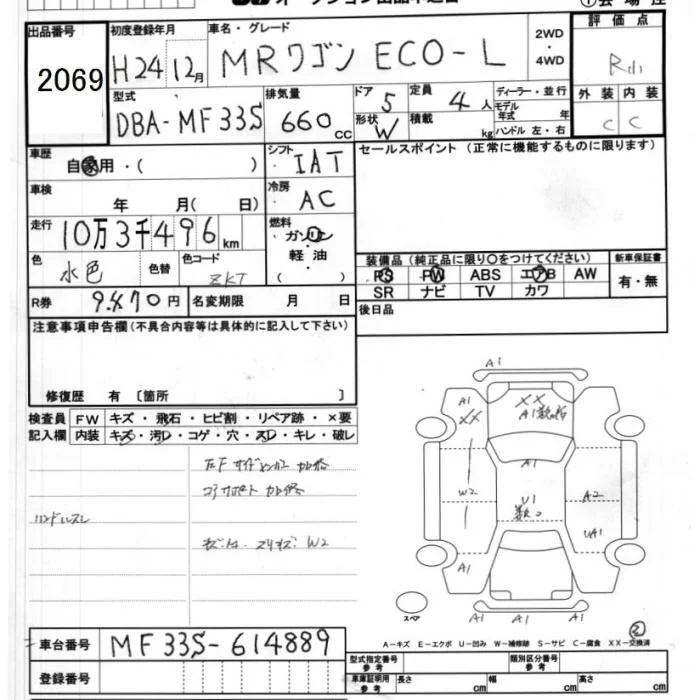 出品番号
2069
初度登録年月
H24 12月
車名・グレード
MRワゴン ECO-L
2WD
・
4WD
評価点
R小
外装 内装
C C
型式
DBA-MF33S
排気量
660 cc
ドア 5
形状 W
定員 4人
積載 kg
ディーラー・並行
モデル
年式 年
ハンドル 左・右
車歴
自家用・( )
シフト
IAT
セールスポイント (正常に機能するものに限ります)
車検
年 月( 日)
冷房
AC
走行
10万3千496km
燃料
・ガソリン
・軽油
( )
色
水色
色替
色コード
ZKT
装備品 (純正品に限り○をつけてください)
PS PW ABS エアB AW
SR ナビ TV カワ
新車保証書
有・無
R券 9,470円
名変期限 月 日
後日品
注意事項申告欄(不具合内容等は具体的に記入して下さい)
修復歴 有〔箇所 〕
検査員
記入欄
FW キズ・飛石・ヒビ割・リペア跡・×要
内装 キズ・汚レ・コゲ・穴・スレ・キレ・破レ
コアサポート
ハンドルスレ
W2
A1
A1
XX
XX
A1
A1
W2
U1
A2
UA1
A1
A1
A1
スペア
A-キズ E-エクボ U-凹み W-補修跡 S-サビ C-腐食 XX-交換済
車台番号
MF33S-614889
登録番号
型式指定番号
参考
類別区分番号
参考
車庫証明用
参考
長さ cm
幅 cm
高さ cm